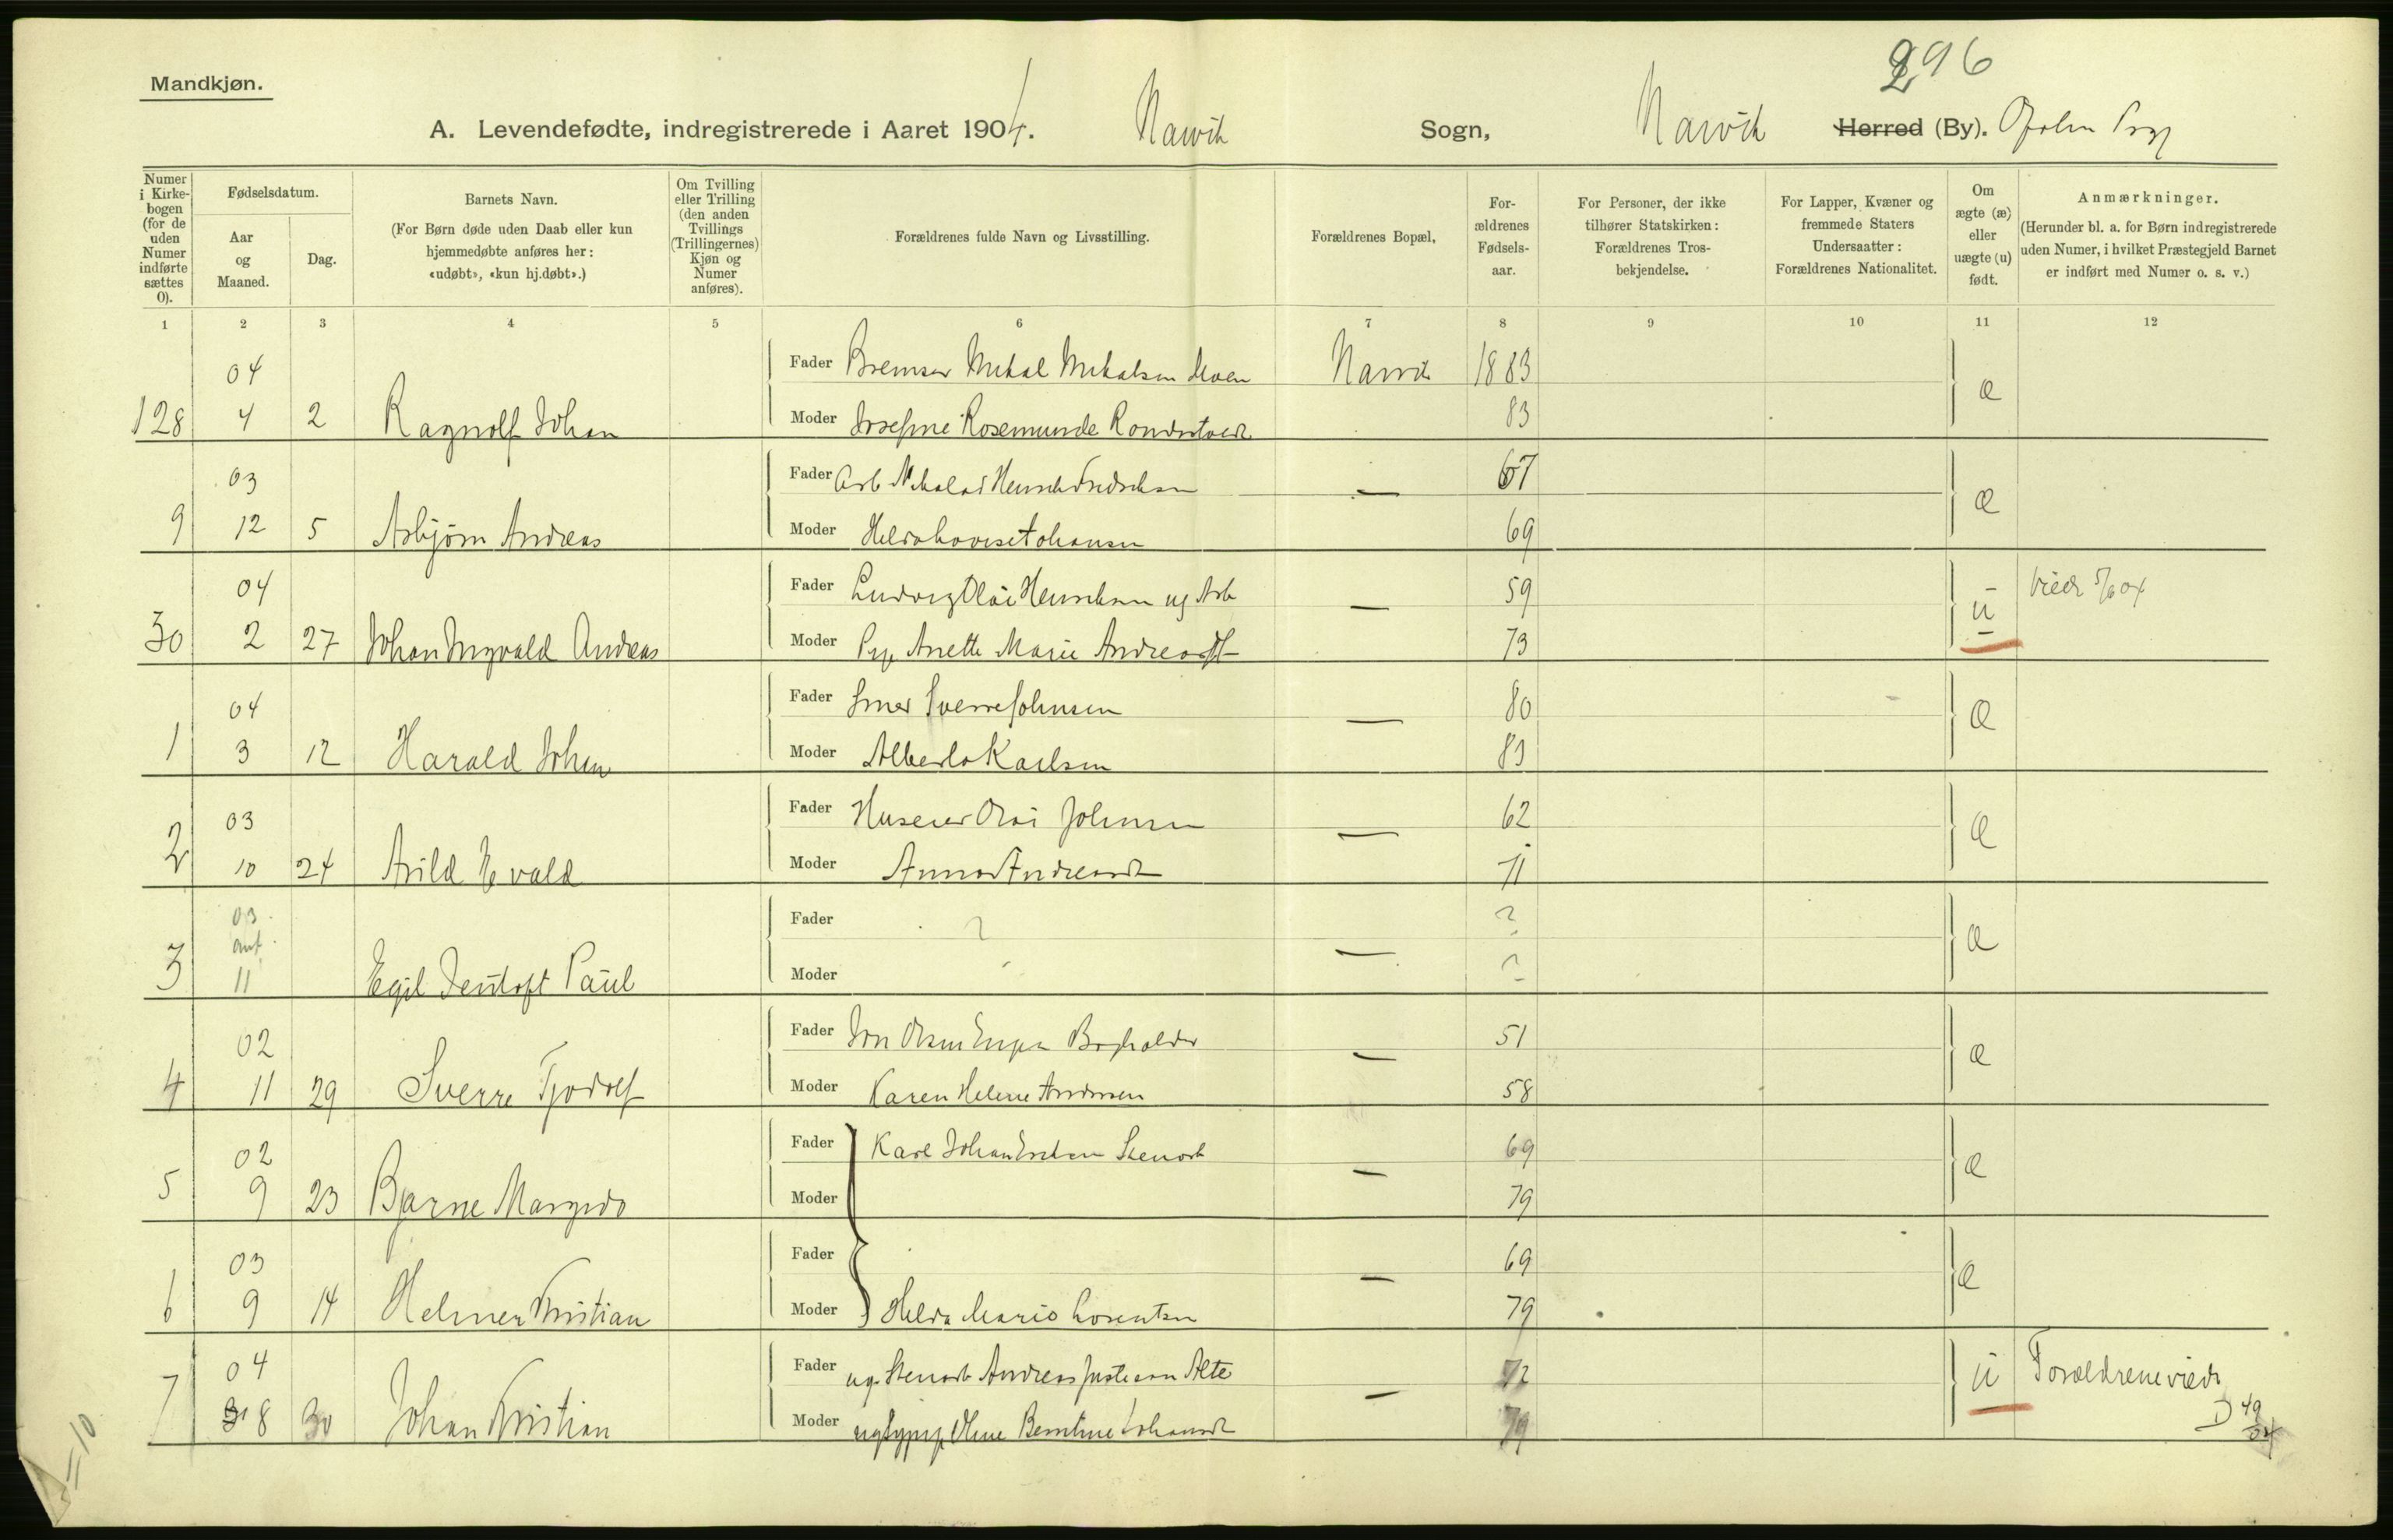 296
Mandkjøn.
A. Levendefødte, indregistrerede i Aaret 1904. Narvik Sogn, Narvik Herred (By). Ofoten Prgj
Numer i Kirkebogen (for de uden Numer indførte sættes 0).
Fødselsdatum.
Aar og Maaned.
Dag.
Barnets Navn.
(For Børn døde uden Daab eller kun hjemmedøbte anføres her: «udøbt», «kun hj.døbt».)
Om Tvilling eller Trilling (den anden Tvillings (Trillingernes) Kjøn og Numer anføres).
Forældrenes fulde Navn og Livsstilling.
Forældrenes Bopæl.
Forældrenes Fødselsaar.
For Personer, der ikke tilhører Statskirken: Forældrenes Trosbekjendelse.
For Lapper, Kvæner og fremmede Staters Undersaatter: Forældrenes Nationalitet.
Om ægte (æ) eller uægte (u) født.
Anmærkninger.
(Herunder bl. a. for Børn indregistrerede uden Numer, i hvilket Præstegjeld Barnet er indført med Numer o. s. v.)
1 2 3 4 5 6 7 8 9 10 11 12
04 Fader Bremser Mikal Mikalsen Moen Narvik 1883 æ
128 4 2 Ragnolf Johan Moder Josefine Rosemunde 83
03 Fader Arb Nikolai Henrik Fredriksen — 67 æ
9 12 5 Asbjørn Andreas Moder Helda Lovise Johansen 69
04 Fader Ludvig Olai Henriksen ug Arb — 59 u Viede 5/6 04
30 2 27 Johan Ingvald Andreas Moder Pige Anette Marie Andreasdt 73
04 Fader Smed Sverre Johnsen — 80 æ
1 3 12 Harald Johan Moder Alberta Karlsen 83
03 Fader Huseier Olai Johnsen — 62 æ
2 10 24 Arild Evald Moder Anna Andreasdt 71
03 Fader ? — ? æ
ant.
3 11 Egil Paul Moder ?
02 Fader Olsen Bogholder — 51 æ
4 11 29 Sverre Tjodolf Moder Karen Helene Andersen 58
02 Fader Karl Johan Eriksen Stenarb — 69 æ
5 9 23 Bjarne Margido Moder 79
03 Fader — 69 æ
6 9 14 Helmer Kristian Moder Helda Marie Lorentsen 79
04 Fader ug. Stenarb Andreas Justesen Alte — 72 u Forældrene viede
7 8 30 Johan Kristian Moder Oline Berntine Johansdt 79 D 49/04
5-10